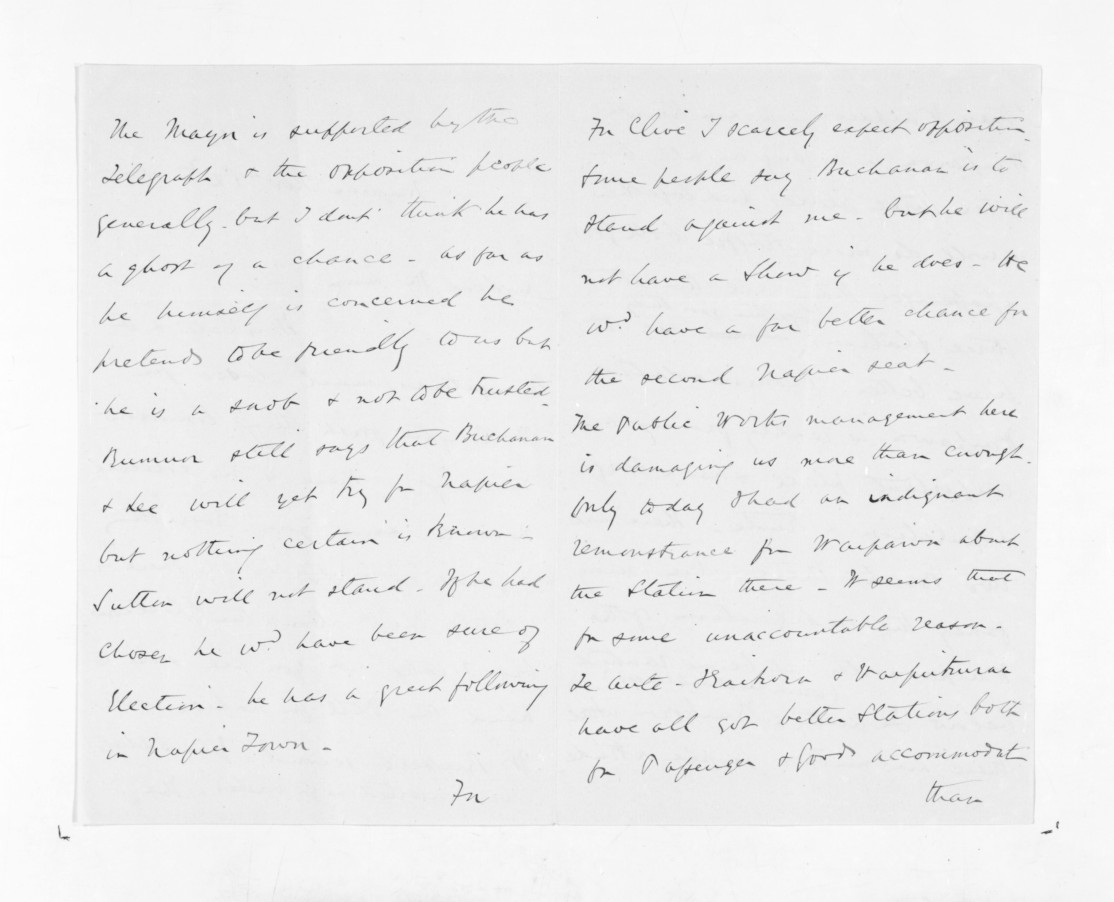 The Mayor is supported by the
Telegraph & the opposition people
generally. but I dont think he has
a ghost of a chance - as far as
he himself is concerned he
pretends to be friendly to us but
he is a snob & not to be trusted.
Rumour still says that Buchanan
& Lee will yet try for Napier
but nothing certain is known -
Sutton will not stand. If he had
chosen he wd. have been sure of
Election - he has a great following
in Napier Town -
For
For Clive I scarcely expect opposition
Some people say Buchanan is to
stand against me - but he will
not have a show if he does - He
wd. have a far better chance for
the second Napier seat -
The Public Works management here
is damaging us more than enough.
only today I had an indignant
remonstrance from Waipawa about
the Station there - It seems that
for some unaccountable reason -
Te Aute - Kaikora & Waipukurau
have all got better Stations both
for Passenger & Goods accommodat
than